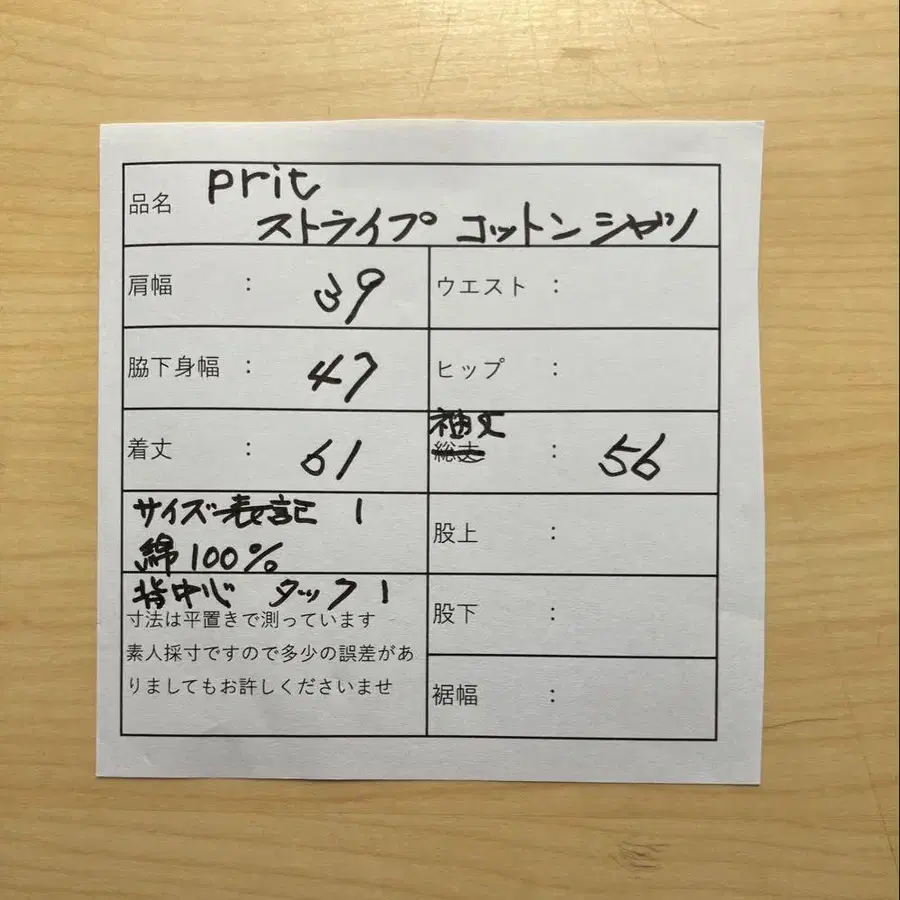 品名 prit
ストライプ コットンシャツ
肩幅 : 39
ウエスト :
脇下身幅 : 47
ヒップ :
着丈 : 61
袖丈
総丈 : 56
サイズ表記 1
綿100%
股上 :
背中心 タック1
寸法は平置きで測っています
素人採寸ですので多少の誤差があ
りましてもお許しくださいませ
股下 :
裾幅 :